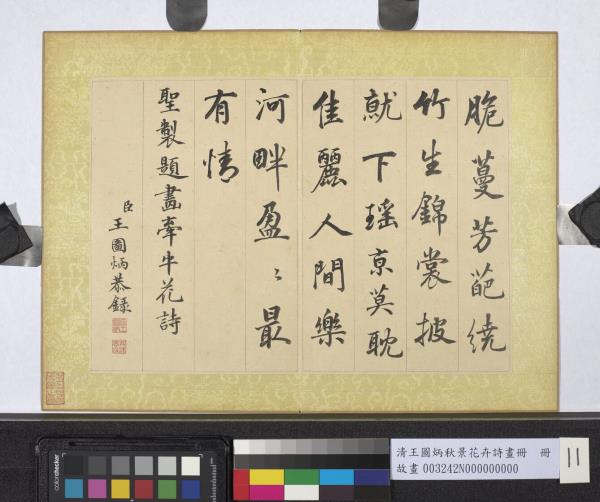 脆蔓芳葩繞
竹生錦裳披
就下瑶京莫耽
佳麗人間樂
河畔盈〻最
有情
聖製題畫牽牛花詩
臣王圖炳恭錄
清王圖炳秋景花卉詩畫冊 冊
故畫003242N000000000
11
colorchecker